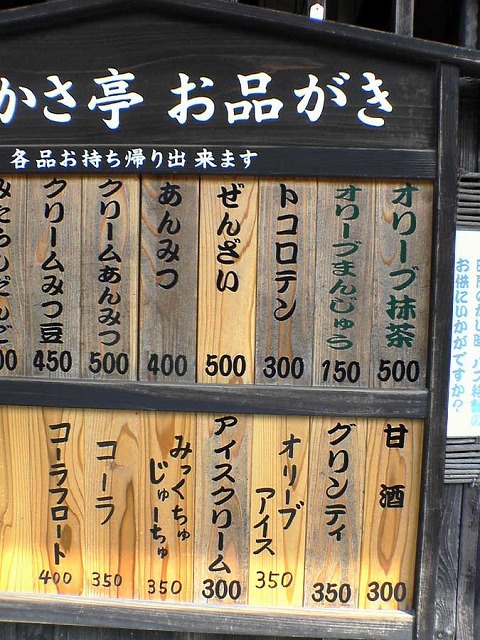 かさ亭 お品がき
各品お持ち帰り出来ます
オリーブ抹茶 500
オリーブまんじゅう 150
トコロテン 300
ぜんざい 500
あんみつ 400
クリームあんみつ 500
クリームみつ豆 450
みたらしだんご 00
甘酒 300
グリンティ 350
オリーブアイス 350
アイスクリーム 300
みっくちゅじゅーちゅ 350
コーラ 350
コーラフロート 400
お供にいかがですか?